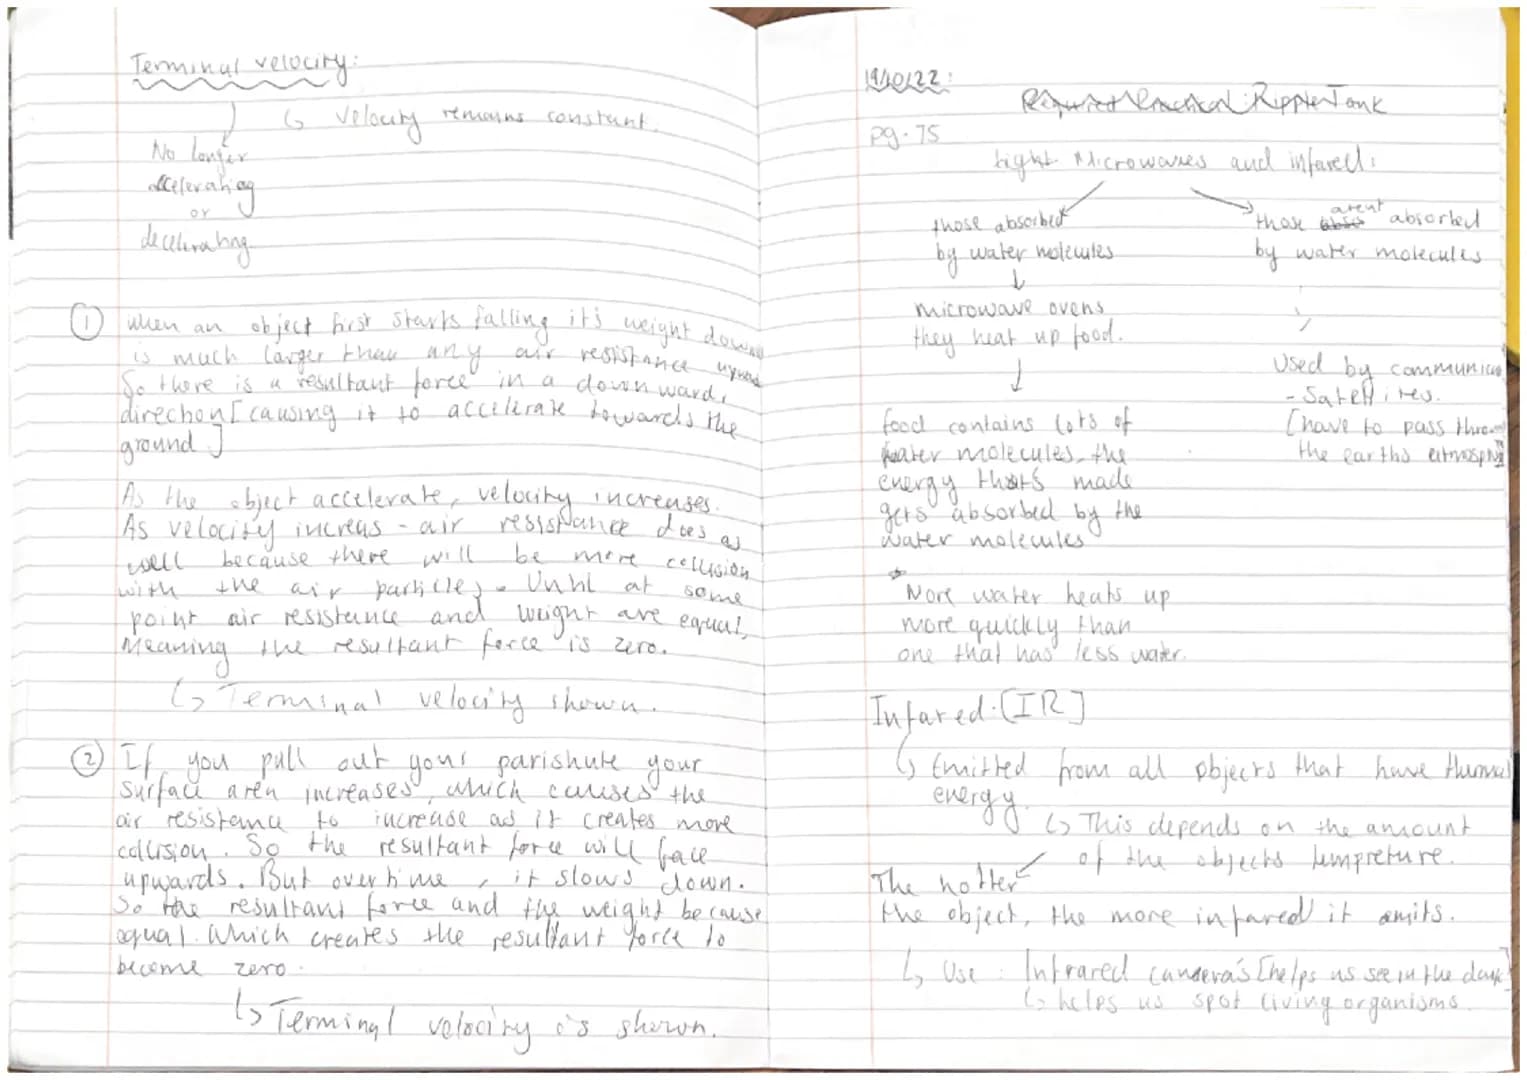 Terminal velocity:
↳ velocity remains constant.
No longer
accelerating
or
decelerating
① When an object first starts falling it's weight down
is much larger than any air resistance upwards
So there is a resultant force in a downward,
direction [causing it to accelerate towards the
ground.]
As the object accelerate, velocity increases.
As velocity increas - air resistance does as
well because there will be more collision
with the air particles. Until at some
point air resistance and weight are equal,
Meaning the resultant force is zero.
↳ Terminal velocity shown.
② If you pull out your parishute your
surface area increases, which causes the
air resistance to increase as it creates more
collision. So the resultant force will face
upwards. But overtime, it slows down.
So the resultant force and the weight because
equal. Which creates the resultant force to
become zero.
↳ Terminal velocity is shown.
19/10/22:
Required Practical: Ripple Tank
pg. 75
Light Microwaves and infared:
those absorbed
by water molecules
microwave ovens
they heat up food.
food contains lots of
water molecules, the
energy thats made
gets absorbed by the
water molecules
More water heats up
more quickly than
one that has less water.
those arent absorbed
by water molecules
Used by communica
- Satellites.
[have to pass throu
the earths
Infared: [IR]
↳ Emitted from all objects that have thermal
energy.
↳ This depends on the amount
of the objects tempreture.
The hotter
the object, the more infared it emits.
↳ Use: Infrared camera's [helps us see in the dark]
↳ helps us spot living organisms.